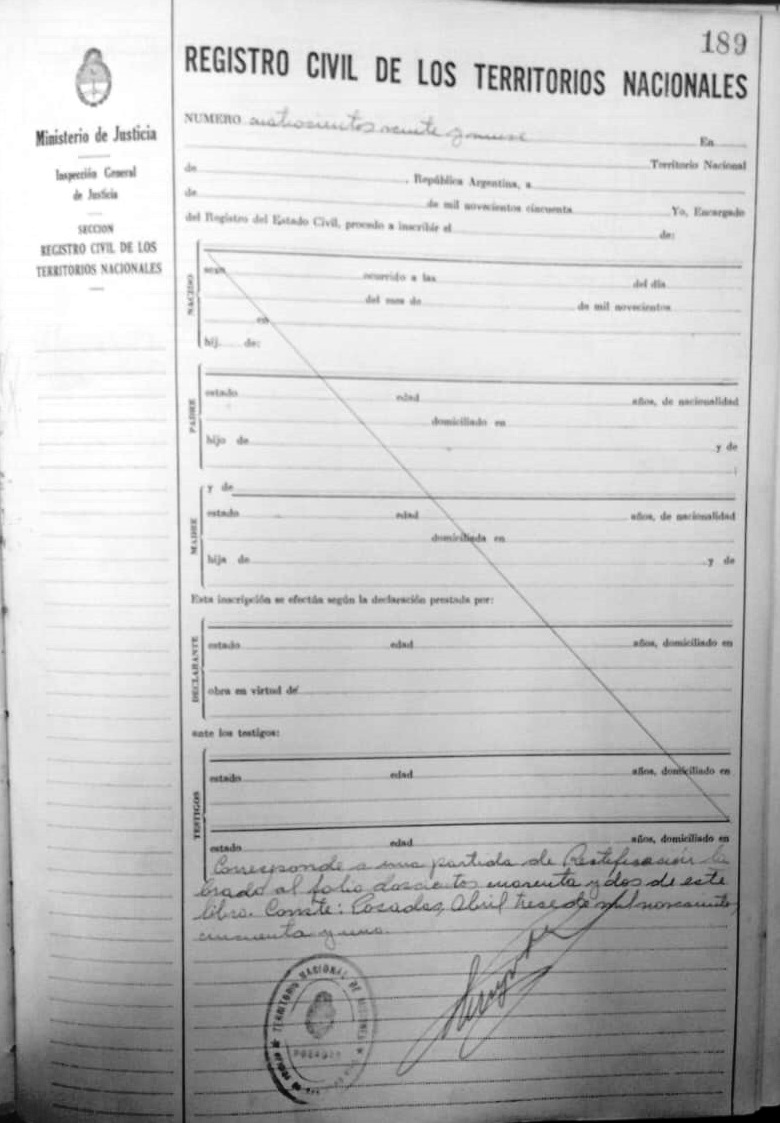 189
REGISTRO CIVIL DE LOS TERRITORIOS NACIONALES
Ministerio de Justicia
Inspección General
de Justicia
SECCION
REGISTRO CIVIL DE LOS
TERRITORIOS NACIONALES
NUMERO cuatrocientos veinte y nueve
En
Territorio Nacional
de , República Argentina, a
de de mil novecientos cincuenta Yo, Encargado
del Registro del Estado Civil, procedo a inscribir el de:
NACIDO
sexo ocurrido a las del día
del mes de de mil novecientos
en
hij de:
PADRE
estado edad años, de nacionalidad
domiciliado en
hijo de y de
;
MADRE
y de
estado edad años, de nacionalidad
domiciliada en
hija de y de
Esta inscripción se efectúa según la declaración prestada por:
DECLARANTE
estado edad años, domiciliado en
obra en virtud de
ante los testigos:
TESTIGOS
estado edad años, domiciliado en
estado edad años, domiciliado en
Corresponde a una partida de Rectificación la
brada al folio doscientos cuarenta y dos de este
libro. Conste: Posadas, Abril trece de mil novecientos
cincuenta y uno.
TERRITORIO NACIONAL DE MISIONES
POSADAS